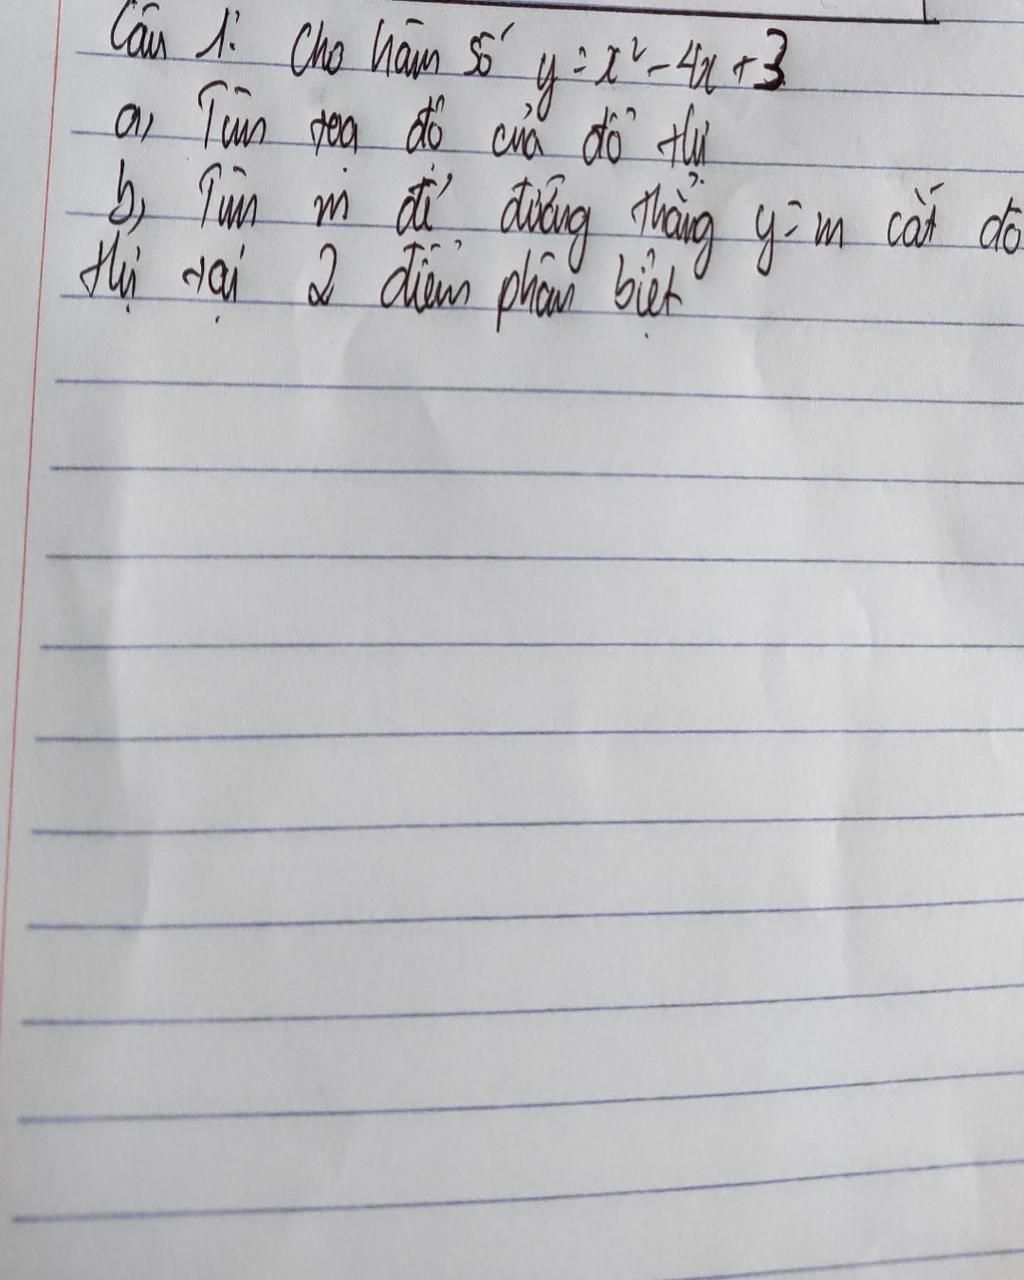 Câu 1: Cho hàm số y = x² - 4x + 3
a, Tìm tọa độ của đồ thị
b, Tìm m để đường thẳng y = m cắt đồ
thị tại 2 điểm phân biệt